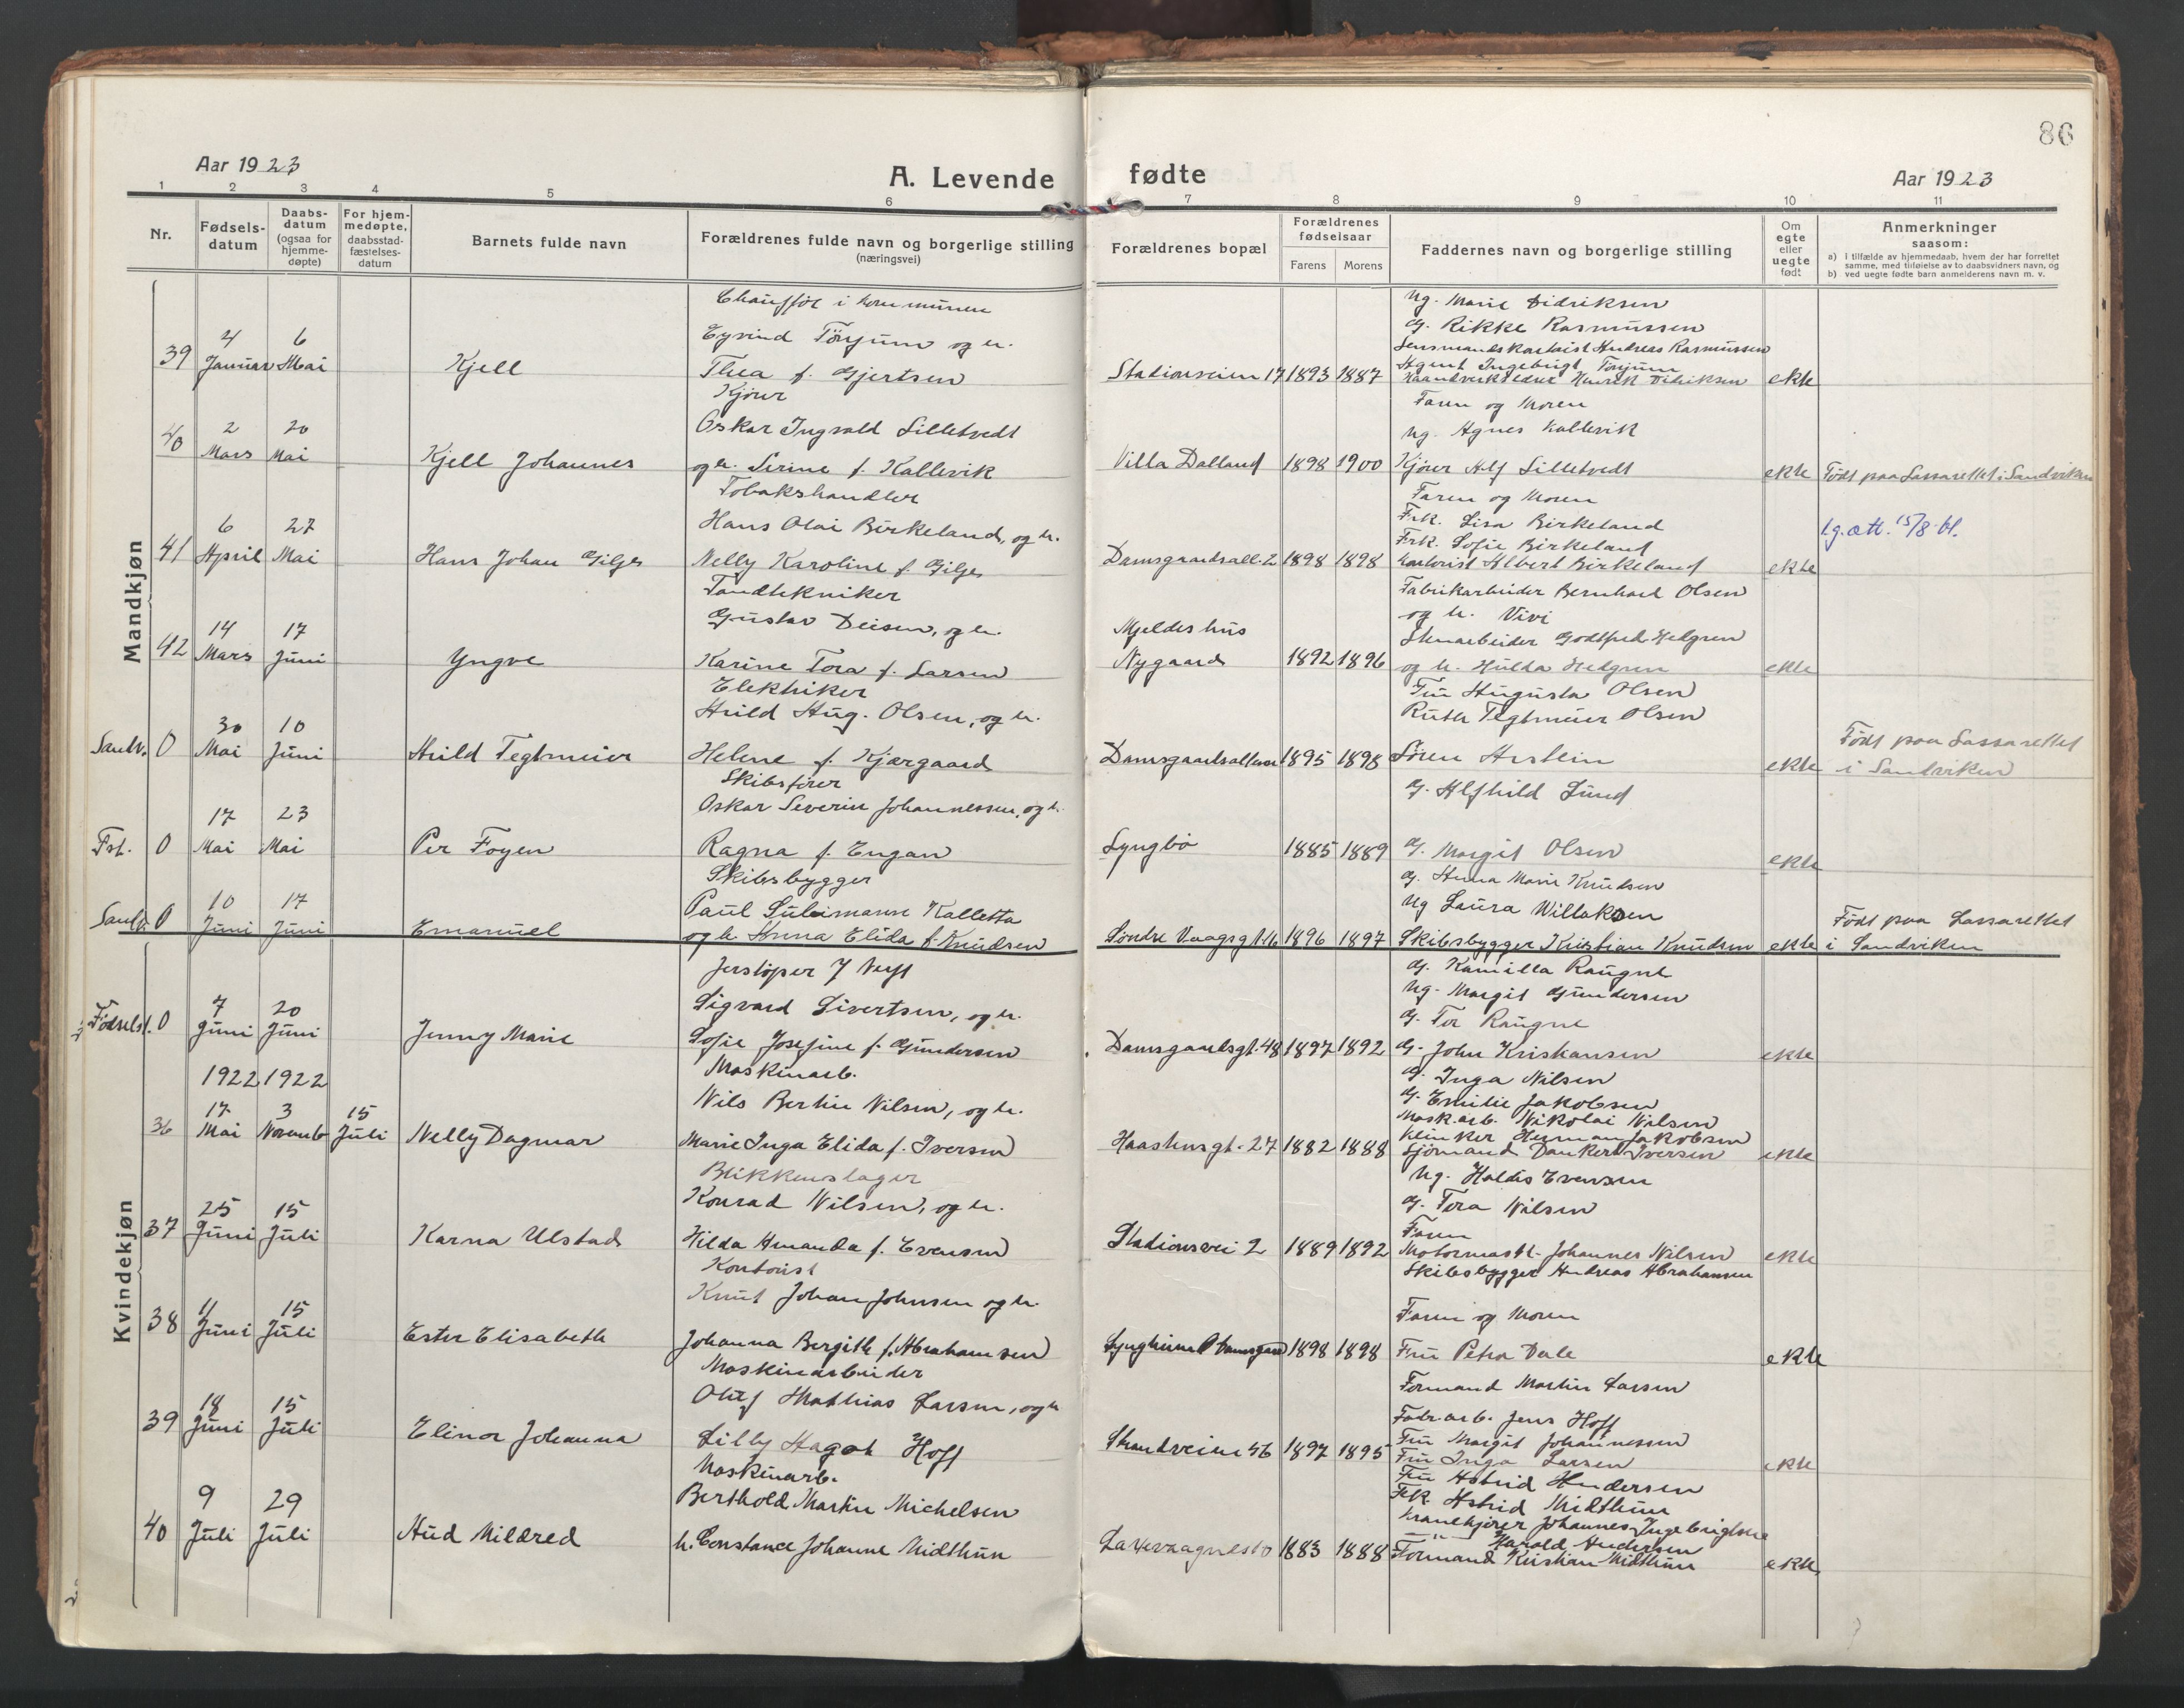 86
Aar 1923
A. Levende fødte
Aar 1923
1 2 3 4 5 6 7 8 9 10 11
Nr.
Fødsels-
datum
Daabs-
datum
(ogsaa for
hjemme-
døpte)
For hjem-
medøpte,
daabsstad-
fæstelses-
datum
Barnets fulde navn
Forældrenes fulde navn og borgerlige stilling
(næringsvei)
Forældrenes bopæl
Forældrenes
fødselsaar
Farens Morens
Faddernes navn og borgerlige stilling
Om
egte
eller
uegte
født
Anmerkninger
saasom:
a) i tilfælde av hjemmedaab, hvem der har forrettet
samme, med tilføielse av to daabsvidners navn, og
b) ved uegte fødte barn anmelderens navn m. v.
Mandkjøn
39
4 6
Januar Mai
Kjell
Chaufför i kommunen
Eyvind Tönjum og h.
Thea f. Gjertsen
Stadionveien 17 1893 1887
Ug. Marie Didriksen
G. Rikke Rasmussen
Lensmandskontorist Andreas Rasmussen
Agent Ingebrigt Tönjum
Haandverksleder Henrik Didriksen
ekte
40
2 20
Mars Mai
Kjell Johannes
Kjører
Oskar Ingvald Lilletvedt
og h. Serine f. Kallevik
Villa Dalland 1898 1900
Faren og Moren
Ug. Agnes Kallevik
Kjører Alf Lilletvedt
ekte Født paa Lassarettet i Sandviken
41
6 27
April Mai
Hans Johan Gilje
Tobakshandler
Hans Olai Birkeland, og h.
Nelly Karoline f. Gilje
Damsgaardsall. 2 1898 1898
Faren og Moren
Frk. Lisa Birkeland
Frk. Sofie Birkeland
Kontorist Albert Birkeland
ekte
l.g. att. 15/8 bl.
42
14 17
Mars Juni
Yngve
Tandtekniker
Gustav Deisen, og h.
Karine Tora f. Larsen
Mjeldes hus
Nygaard 1892 1896
Fabrikarbeider Bernhard Olsen
og h. Vivi
Stenarbeider Godtfred Hedgren
og h. Hulda Hedgren
ekte
Sandv. 0
30 10
Mai Juni
Arild Tegtmeier
Elektriker
Arild Aug. Olsen, og h.
Helene f. Kjærgaard
Damsgaardsalleen 1895 1898
Fru Augusta Olsen
Ruth Tegtmeier Olsen
Søren Arstein
ekte
Født paa Lassarettet
i Sandviken
Fst. 0
17 23
Mai Mai
Per Foyen
Skibsfører
Oskar Severin Johannessen, og h.
Ragna f. Engan
Lyngbö 1885 1889
G. Alfhild Lund
G. Margit Olsen
ekte
Sandv. 0
10 17
Juni Juni
Emanuel
Skibsbygger
Paul Suleimann Kalletta
og h. Anna Elida f. Knudsen
Søndre Vaagsgt. 16 1896 1897
G. Anna Marie Knudsen
Ug Laura Willaksen
Skibsbygger Kristian Knudsen
ekte
Født paa Lassarettet
i Sandviken
Kvindekjøn
Fødselst. 0
7 20
Juni Juni
Jenny Marie
Jernstøper
Sigvard Sivertsen, og h.
Sofie Josefine f. Gundersen
Damsgaardsgt. 48 1897 1892
G. Kamilla Raugne
Ug. Margit Gundersen
G. Tor Raugne
G. John Kristiansen
ekte
1922 1922
36
17 3 15
Mai Novemb Juli
Nelly Dagmar
Maskinarb.
Nils Bertin Nilsen, og h.
Marie Inga Elida f. Iversen
Haastensgt. 27 1882 1888
G. Inga Nilsen
G. Emilie Jakobsen
Mask.arb. Nikolai Nilsen
Klinker Herman Jakobsen
Sjømand Dankert Iversen
ekte
37
25 15
Juni Juli
Karna Ulstad
Blikkenslager
Konrad Nilsen, og h.
Hilda Amanda f. Evensen
Stadionsvei 2 1889 1892
Ug. Haldis Evensen
G. Tora Nilsen
Faren
Motormaskt. Johannes Nilsen
Skibsbygger Andreas Abrahamsen
ekte
38
11 15
Juni Juli
Ester Elisabeth
Kontorist
Knut Johan Johnsen og h.
Johanna Bergith f. Abrahamsen
Lyngheim Damsgaard 1898 1898
Faren og Moren
Fru Petra Dale
ekte
39
18 15
Juni Juli
Elinor Johanna
Maskinarbeider
Oluf Mathias Larsen, og h
Lilly Hagot Hoff
Strandveien 56 1897 1895
Formand Martin Larsen
Fabr.arb. Jens Hoff
Fru Margit Johannessen
Fru Inga Larsen
ekte
40
9 29
Juli Juli
Aud Mildred
Maskinarb.
Berthold Martin Michelsen
h. Constance Johanne Midthun
Laksevaagnesto 1883 1888
Fru Astrid Andersen
Frk Astrid Midthun
Kranekjører Johannes Ingebrigtsen
— " — Harald Andersen
Formand Kristian Midthun
ekte